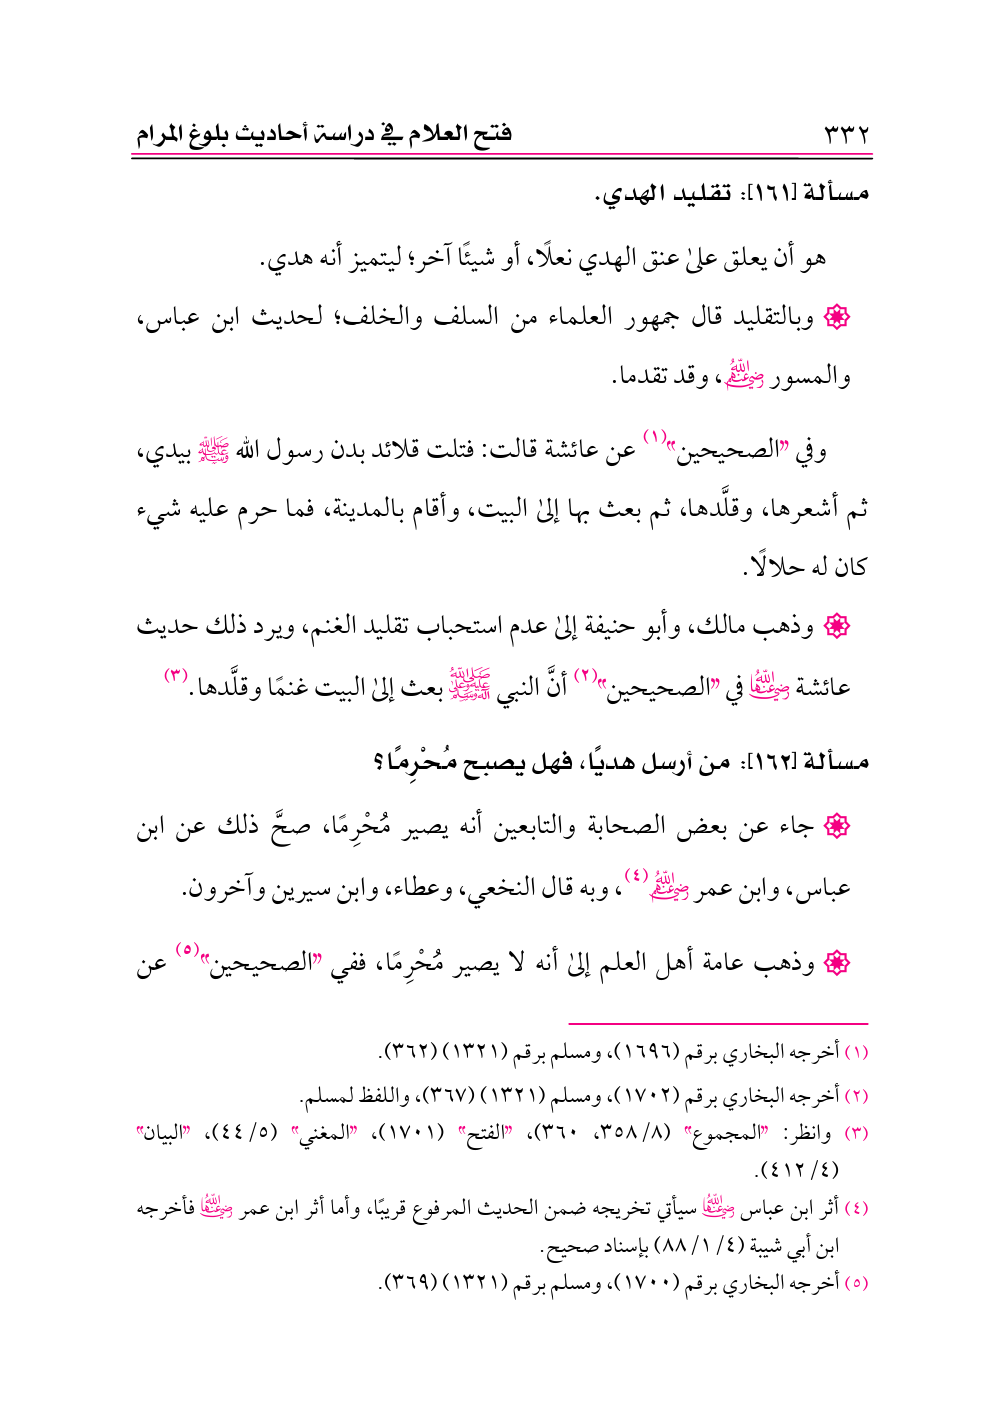 ٣٣٢ فتح العلام في دراسة أحاديث بلوغ المرام
مسألة [١٦١]: تقليد الهدي.
هو أن يعلق علىٰ عنق الهدي نعلًا، أو شيئًا آخر؛ ليتميز أنه هدي.
وبالتقليد قال جمهور العلماء من السلف والخلف؛ لحديث ابن عباس،
والمسور رضي الله عنهم، وقد تقدما.
وفي "الصحيحين"(١) عن عائشة قالت: فتلت قلائد بدن رسول الله ﷺ بيدي،
ثم أشعرها، وقلَّدها، ثم بعث بها إلىٰ البيت، وأقام بالمدينة، فما حرم عليه شيء
كان له حلالًا.
وذهب مالك، وأبو حنيفة إلىٰ عدم استحباب تقليد الغنم، ويرد ذلك حديث
عائشة رضي الله عنها في "الصحيحين"(٢) أنَّ النبي ﷺ بعث إلىٰ البيت غنمًا وقلَّدها.(٣)
مسألة [١٦٢]: من أرسل هديًا، فهل يصبح مُحْرِمًا؟
جاء عن بعض الصحابة والتابعين أنه يصير مُحْرِمًا، صحَّ ذلك عن ابن
عباس، وابن عمر رضي الله عنهم(٤)، وبه قال النخعي، وعطاء، وابن سيرين وآخرون.
وذهب عامة أهل العلم إلىٰ أنه لا يصير مُحْرِمًا، ففي "الصحيحين"(٥) عن
(١) أخرجه البخاري برقم (١٦٩٦)، ومسلم برقم (١٣٢١) (٣٦٢).
(٢) أخرجه البخاري برقم (١٧٠٢)، ومسلم (١٣٢١) (٣٦٧)، واللفظ لمسلم.
(٣) وانظر: "المجموع" (٨/ ٣٥٨، ٣٦٠)، "الفتح" (١٧٠١)، "المغني" (٥/ ٤٤)، "البيان"
(٤/ ٤١٢).
(٤) أثر ابن عباس رضي الله عنهما سيأتي تخريجه ضمن الحديث المرفوع قريبًا، وأما أثر ابن عمر رضي الله عنهما فأخرجه
ابن أبي شيبة (٤/ ١/ ٨٨) بإسناد صحيح.
(٥) أخرجه البخاري برقم (١٧٠٠)، ومسلم برقم (١٣٢١) (٣٦٩).